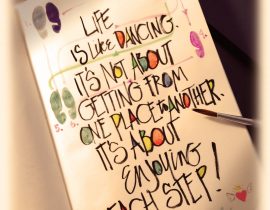 LIFE
IS LIKE DANCING.
IT'S NOT ABOUT
GETTING FROM
ONE PLACE to ANOTHER.
IT'S ABOUT
ENJOYING
EACH STEP!